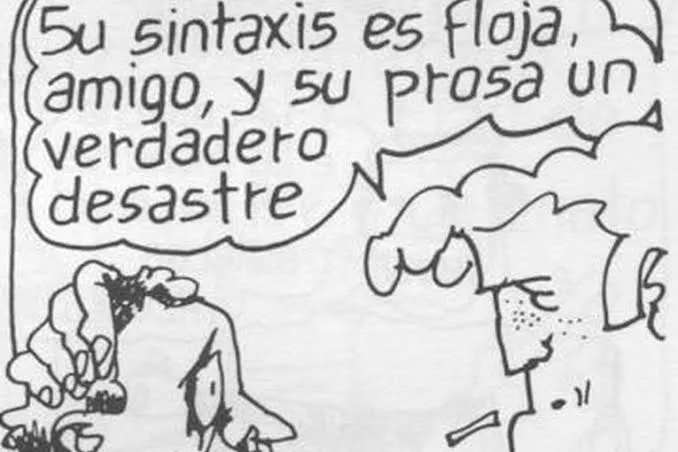 Su sintaxis es floja,
amigo, y su prosa un
verdadero
desastre